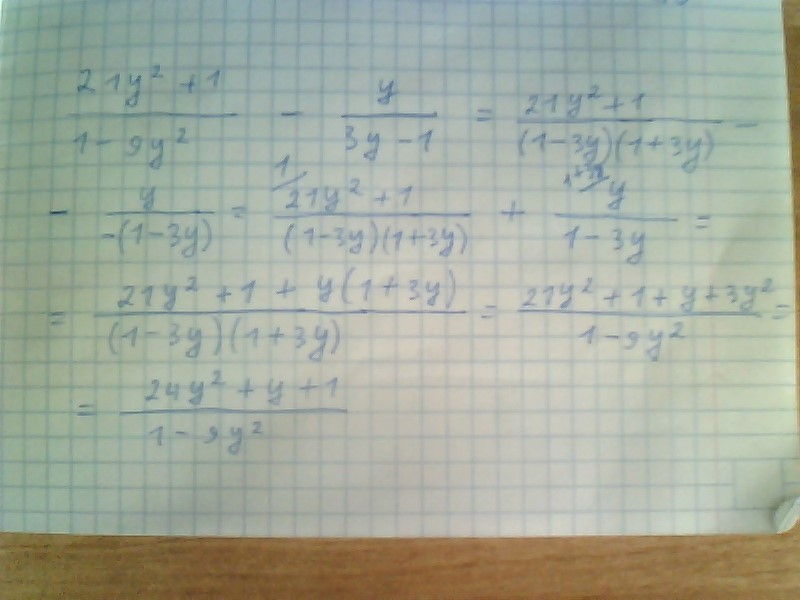 (21y² + 1)/(1 - 9y²) - y/(3y - 1) = (21y² + 1)/((1 - 3y)(1 + 3y)) -
- y/(-(1 - 3y)) = ¹⁄ (21y² + 1)/((1 - 3y)(1 + 3y)) + ¹⁺³ʸ⁄ y/(1 - 3y) =
= (21y² + 1 + y(1 + 3y))/((1 - 3y)(1 + 3y)) = (21y² + 1 + y + 3y²)/(1 - 9y²) =
= (24y² + y + 1)/(1 - 9y²)